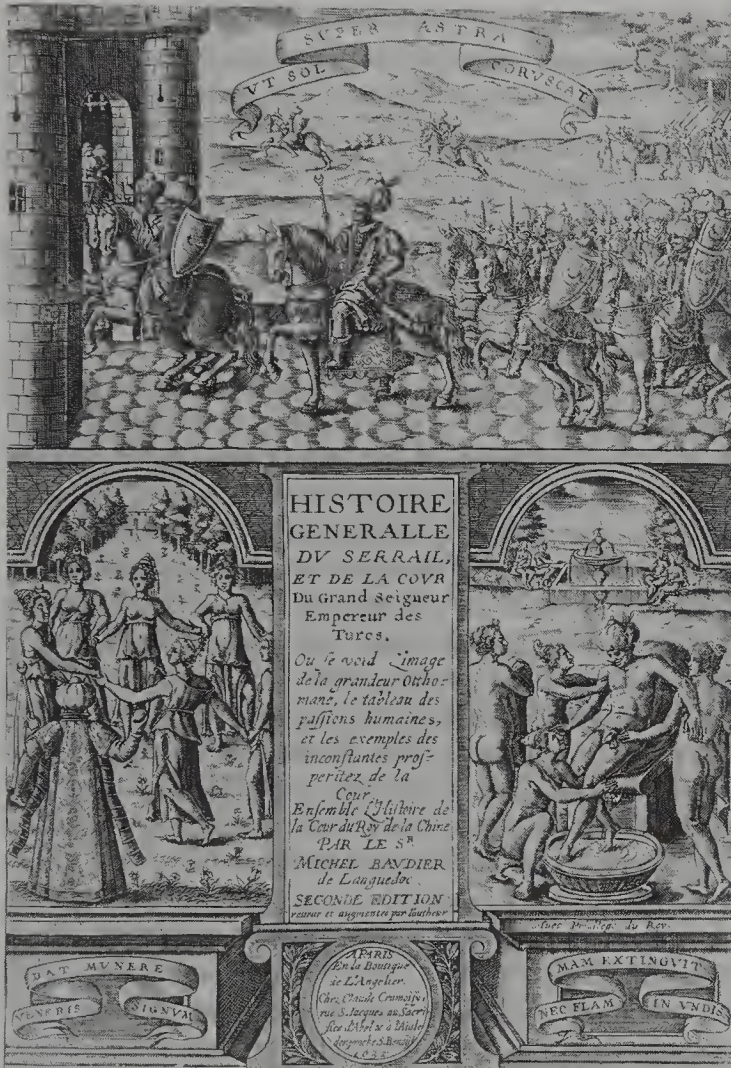 SVPER ASTRA
VT SOL
CORVSCAT
HISTOIRE
GENERALLE
DV SERRAIL,
ET DE LA COVR
Du Grand Seigneur
Empereur des
Turcs.
Ou se void l'image
de la grandeur Otthomane,
le tableau des
passions humaines,
et les exemples des
inconstantes prosperitez
de la
Cour.
Ensemble l'Histoire de
la Cour du Roy de la Chine
PAR LE S.R
MICHEL BAVDIER
de Languedoc.
SECONDE EDITION
reveue et augmentée par l'autheur
Avec Privilege du Roy.
DAT MVNERE
VENERIS SIGNVM
A PARIS
En la Boutique
de L'Angelier.
Chez Claude Cramoisy,
rue S. Jacques au Sacrifice
d'Abel
proche S. Benoist
MAM EXTINGVIT
NEC FLAM IN VNDIS